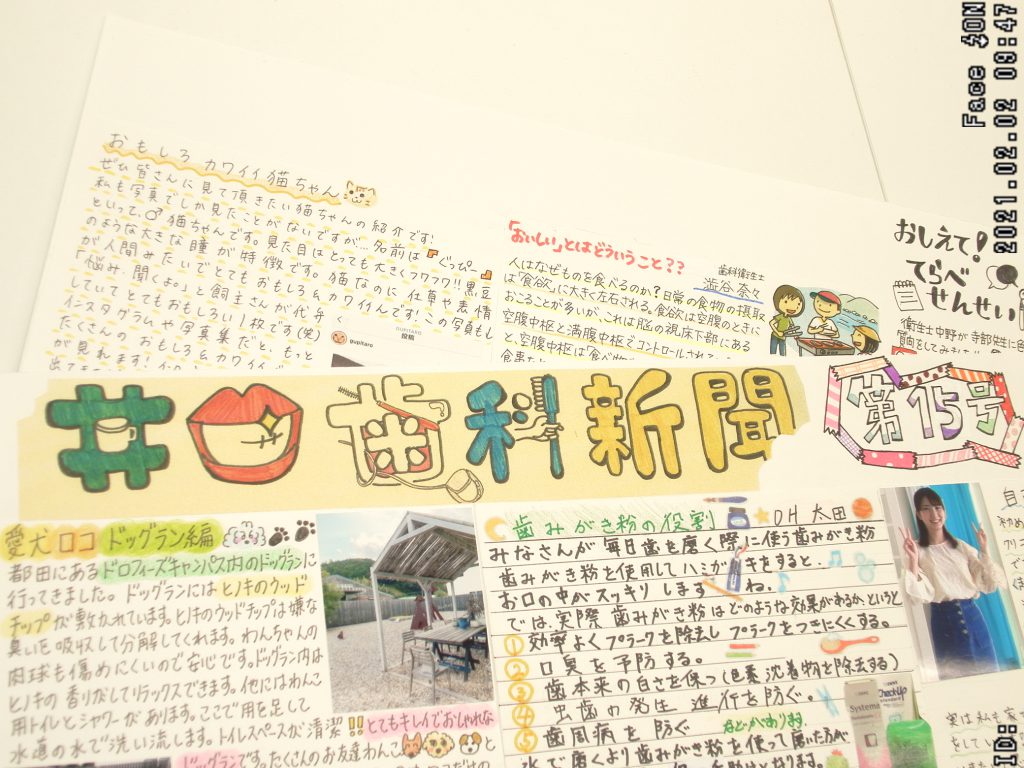 Face 40N
2021.02.02 09:47
ID:
おもしろ カワイイ猫ちゃん
ぜひ皆さんに見て頂きたい猫ちゃんの紹介です!
私も写真でしか見たことがないですが…名前は『ぐっぴー』
といって、♂猫ちゃんです。見た目はとっても大きくフワフワ!!黒豆
のような大きな瞳が特徴です。猫なのに仕草や表情
が人間みたいでとてもおもしろ&カワイイんです!この写真もし
「悩み、聞くよ。」と飼主さんが代弁
していてとてもおもしろい1枚です(笑)
インスタグラムや写真集だと、もっと
たくさんのおもしろ&カワイイ
が見れます!
GUPITARO
投稿
gupitaro
「おいしい」とはどういうこと??
歯科衛生士
澁谷 奈々
人はなぜものを食べるのか?日常の食物の摂取
は「食欲」に大きく左右される。食欲は空腹のときに
おこることが多いが、これは脳の視床下部にある
空腹中枢と満腹中枢でコントロールされて
と、空腹中枢は「食べ物
食事を
おしえて!
てらべ
せんせい
衛生士中野が寺部先生に
質問をしてみました
井口歯科新聞
第15号
愛犬ロコ ドッグラン編
都田にあるドロフィーズキャンパス内のドッグランに
行ってきました。ドッグランにはヒノキのウッド
チップが敷かれています。ヒノキのウッドチップは嫌な
臭いを吸収して分解してくれます。わんちゃんの
肉球も傷めにくいので安心です。ドッグラン内は
ヒノキの香りがしてリラックスできます。他にはわんこ
用トイレとシャワーがあります。ここで用を足して
水道の水で洗い流します。トイレスペースが清潔!!とてもキレイでおしゃれな
ドッグランです。たくさんのお友達わんこ
歯みがき粉の役割 DH 太田
みなさんが毎日歯を磨く際に使う歯みがき粉
歯みがき粉を使用してハミガキをすると、
お口の中がスッキリしますね。
では、実際歯みがき粉はどのような効果があるか、というと
①効率よくプラークを除去しプラークをつきにくくする。
②口臭を予防する。
③歯本来の白さを保つ(色素沈着物を除去する)
④虫歯の発生 進行を防ぐ。
⑤歯周病を防ぐ などがあります。
水で磨くより歯みがき粉を使って磨いた方が
Systema
Check-Up
standard
実は私も